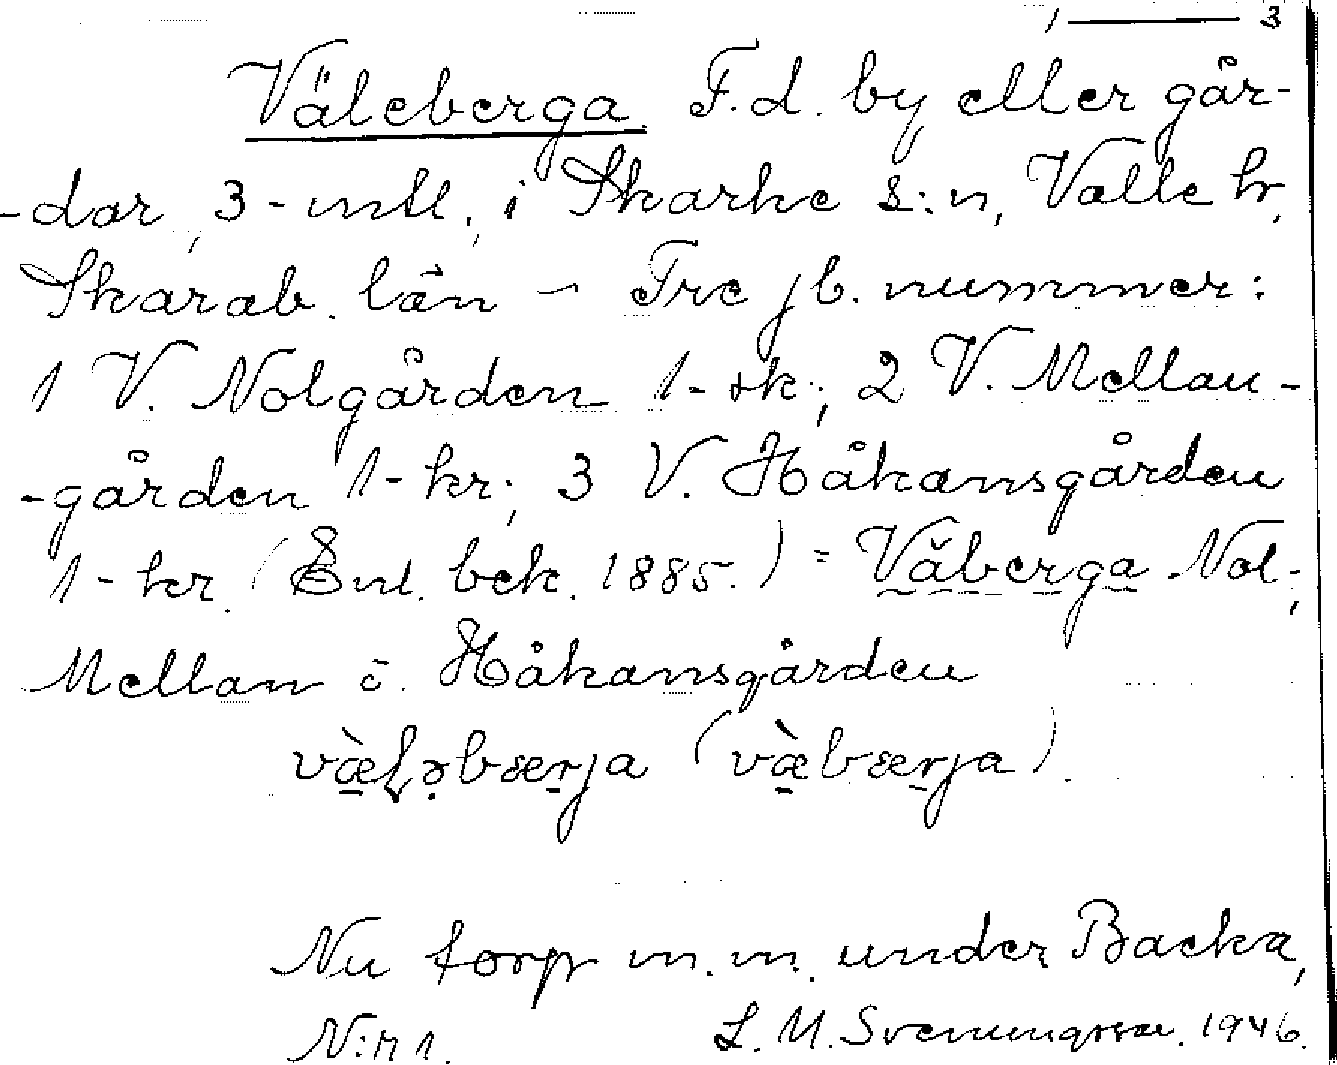 1 — 3
Väleberga. F.d. by eller går-
-dar, 3-mtl., i Skarke s:n, Valle hr,
Skarab. län – Tre jb. nummer:
1 V. Nolgården 1-sk.; 2 V. Mellan-
-gården 1-kr.; 3 V. Håkansgården
1-kr. (Enl. bek. 1885.) = Våberga Nol-,
Mellan o. Håkansgården
(
Nu torp m.m. under Backa,
N:r 1. L. M. Svenungsson. 1946.